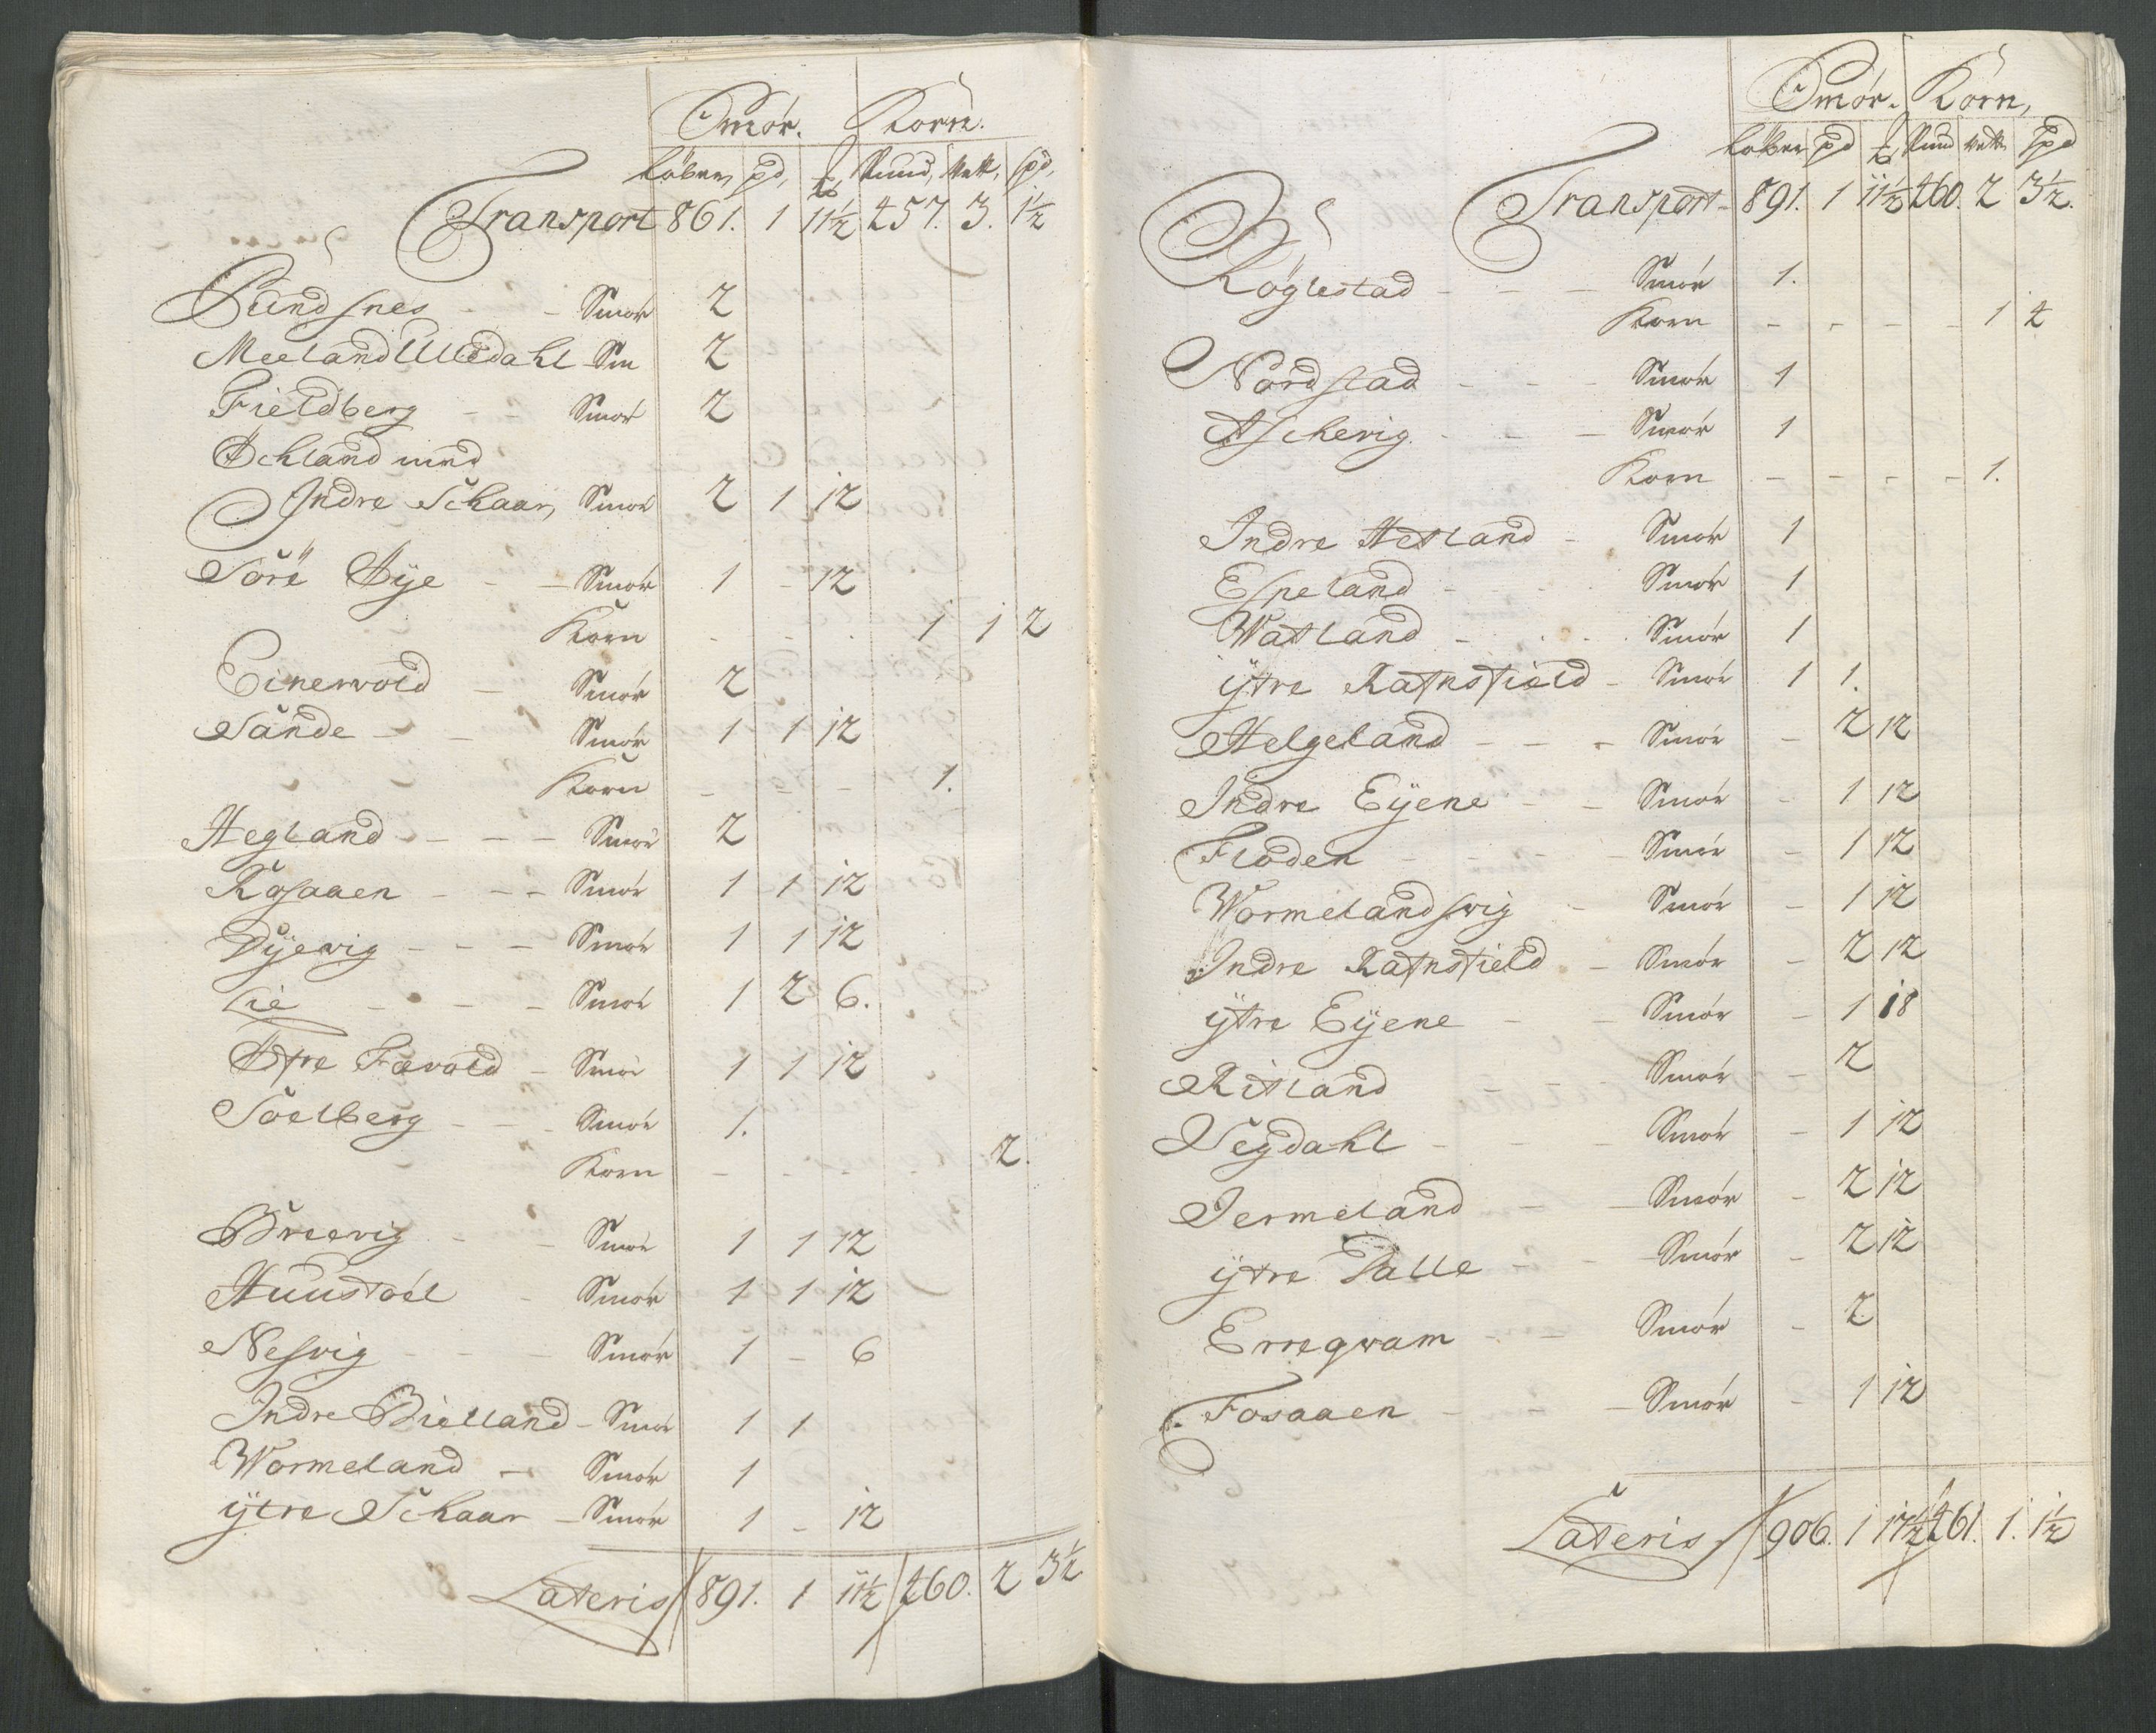 Smör. Korn.
Löber, pd, ℔, Pund, Vett, spd,
Transport 861. 1 11½ 457. 3. 1½
Sundsnes - - Smör 2
Meeland Ulledahl Sm 2
Fieldberg - - Smör 2
Öchland und
Indre Schaar, Smör 2 1 12
Söre Øye - - Smör 1 - 12
Korn - - - 1 1 2
Einerwold - Smör 2
Sande - - Smör 1 1 12
Korn - - - 1.
Hegland - - - Smör 2
Rosaaen - - - Smör 1 1 12
Dÿevig - - - Smör 1 1 12
Lie - - - Smör 1 2 6.
Øfre Fævold - Smör 1 1 12
Soelberg - - - Smör 1.
Korn - - - - 2.
Breevig - - Smör 1 1 12
Huustöel - Smör 1 1 12
Nesvig - - - Smör 1 - 6
Indre Bielland - Smör 1 1
Wormeland - Smör 1
ÿtre Schaar - Smör 1 - 12
Lateris 891. 1 11½ 460. 2 3½
Smör. Korn,
Löber pd ℔ Pund Vett Spd
Transport - 891. 1 11½ 460. 2 3½.
Röglestad - - - Smör 1.
Korn - - - - 1 4
Nordstad - - - Smör 1
Aschevig. - - - Smör 1
Korn - - - - 1.
Indre Hetland - Smör 1
Espeland - - - Smör 1
Watland - - - Smör 1
ÿtre Rafnsfield - Smör 1 1.
Helgeland - - - Smör - 2 12
Indre Eÿene - - Smör - 1 12
Floden - - - - Smör - 1 12
Wormelandsvig - Smör - 1 12
Indre Rafnsfield - Smör - 2 12
ÿtre Eÿene - - Smör - 1 18
Ritland - - - Smör - 2
Negdahl - - - Smör - 1 12
Jermeland - - Smör - 2 12
ÿtre Talle - - - Smör - 2 12
Erreqvam - - Smör - 2
Fosaaen - - - Smör - 1 12
Lateris 906. 1 17½ 461. 1. 1½